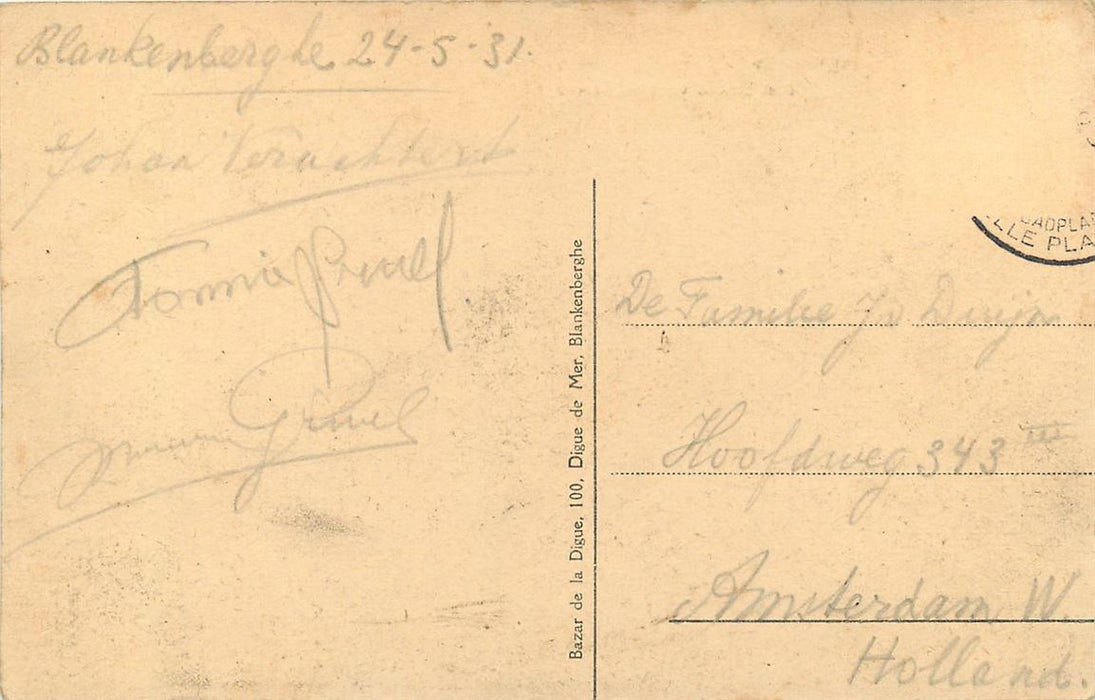 Blankenberghe 24-5-31.
Johan Verachtert
Grivel
Bazar de la Digue, 100, Digue de Mer, Blankenberghe
LLE PLA
De Familie Duijn
Hoofdweg 343 III
Amsterdam W.
Holland.